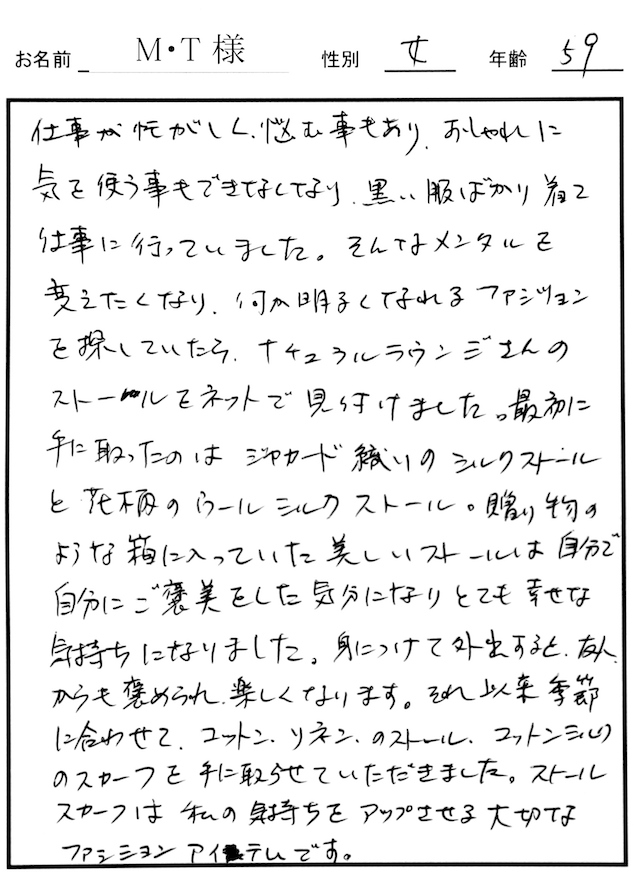 お名前 M・T 様 性別 女 年齢 59
仕事が忙がしく、悩む事もあり、おしゃれに
気を使う事もできなくなり、黒い服ばかり着て
仕事に行っていました。そんなメンタルを
変えたくなり、何か明るくなれるファッション
を探していたら、ナチュラルラウンジさんの
ストールをネットで見付けました。最初に
手に取ったのは ジャカード織りのシルクストール
と花柄のウールシルクストール。贈り物の
ような箱に入っていた美しいストールは自分で
自分にご褒美をした気分になりとても幸せな
気持ちになりました。身につけて外出すると、友人
からも褒められ、楽しくなります。それ以来季節
に合わせて、コットン、リネン、のストール、コットンシルク
のスカーフを手に取らせていただきました。ストール
スカーフは 私の気持ちをアップさせる大切な
ファッションアイテムです。